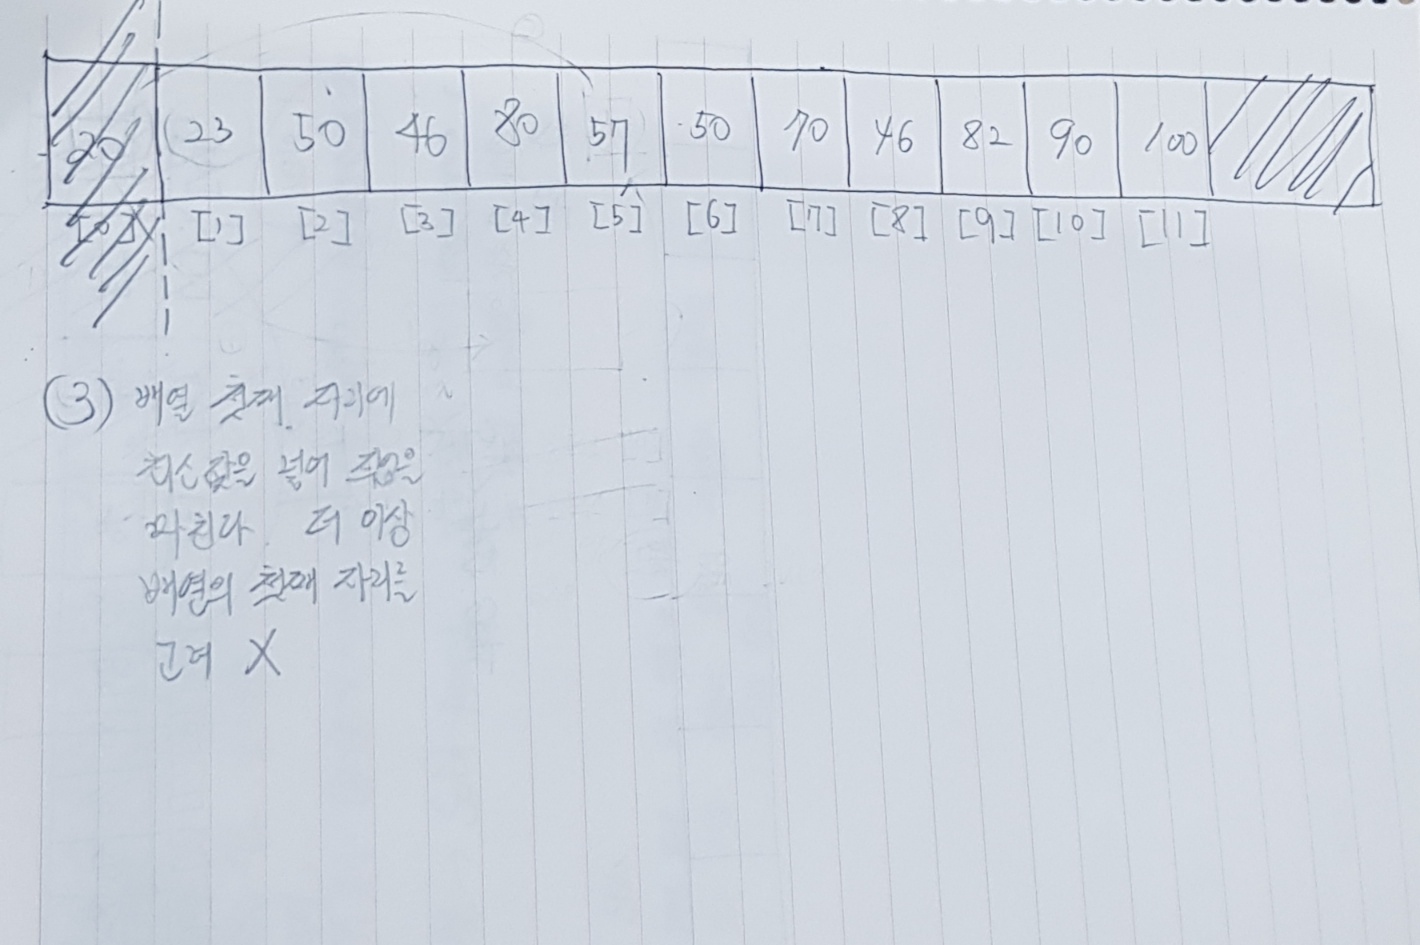 20 23 50 46 80 57 50 70 46 82 90 100
[0] [1] [2] [3] [4] [5] [6] [7] [8] [9] [10] [11]
(3) 배열 첫째 자리에
최솟값을 넣어 주었을
마친다. 더 이상
배열의 첫째 자리를
고려 X